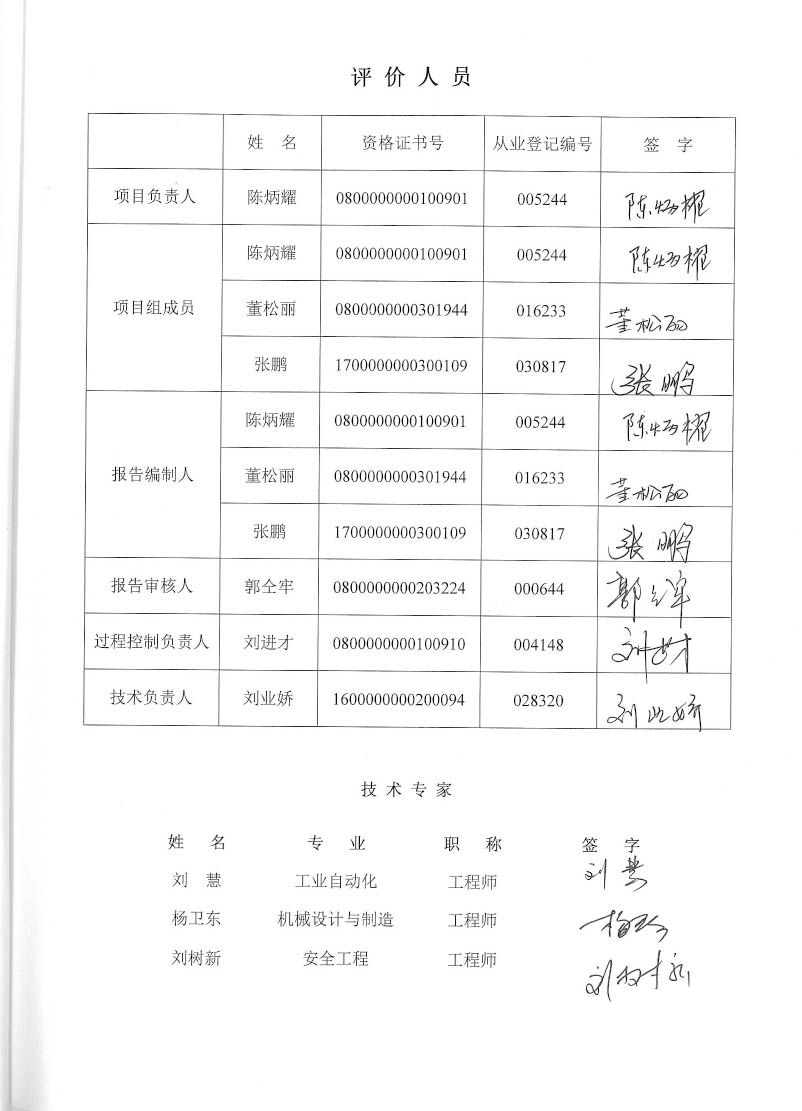 评价人员
姓 名 资格证书号 从业登记编号 签 字
项目负责人 陈炳耀 0800000000100901 005244 陈炳耀
项目组成员 陈炳耀 0800000000100901 005244 陈炳耀
董松丽 0800000000301944 016233 董松丽
张鹏 1700000000300109 030817 张鹏
报告编制人 陈炳耀 0800000000100901 005244 陈炳耀
董松丽 0800000000301944 016233 董松丽
张鹏 1700000000300109 030817 张鹏
报告审核人 郭仝牢 0800000000203224 000644 郭仝牢
过程控制负责人 刘进才 0800000000100910 004148 刘进才
技术负责人 刘业娇 1600000000200094 028320 刘业娇
技术专家
姓 名 专 业 职 称 签 字
刘 慧 工业自动化 工程师 刘慧
杨卫东 机械设计与制造 工程师
刘树新 安全工程 工程师 刘树新